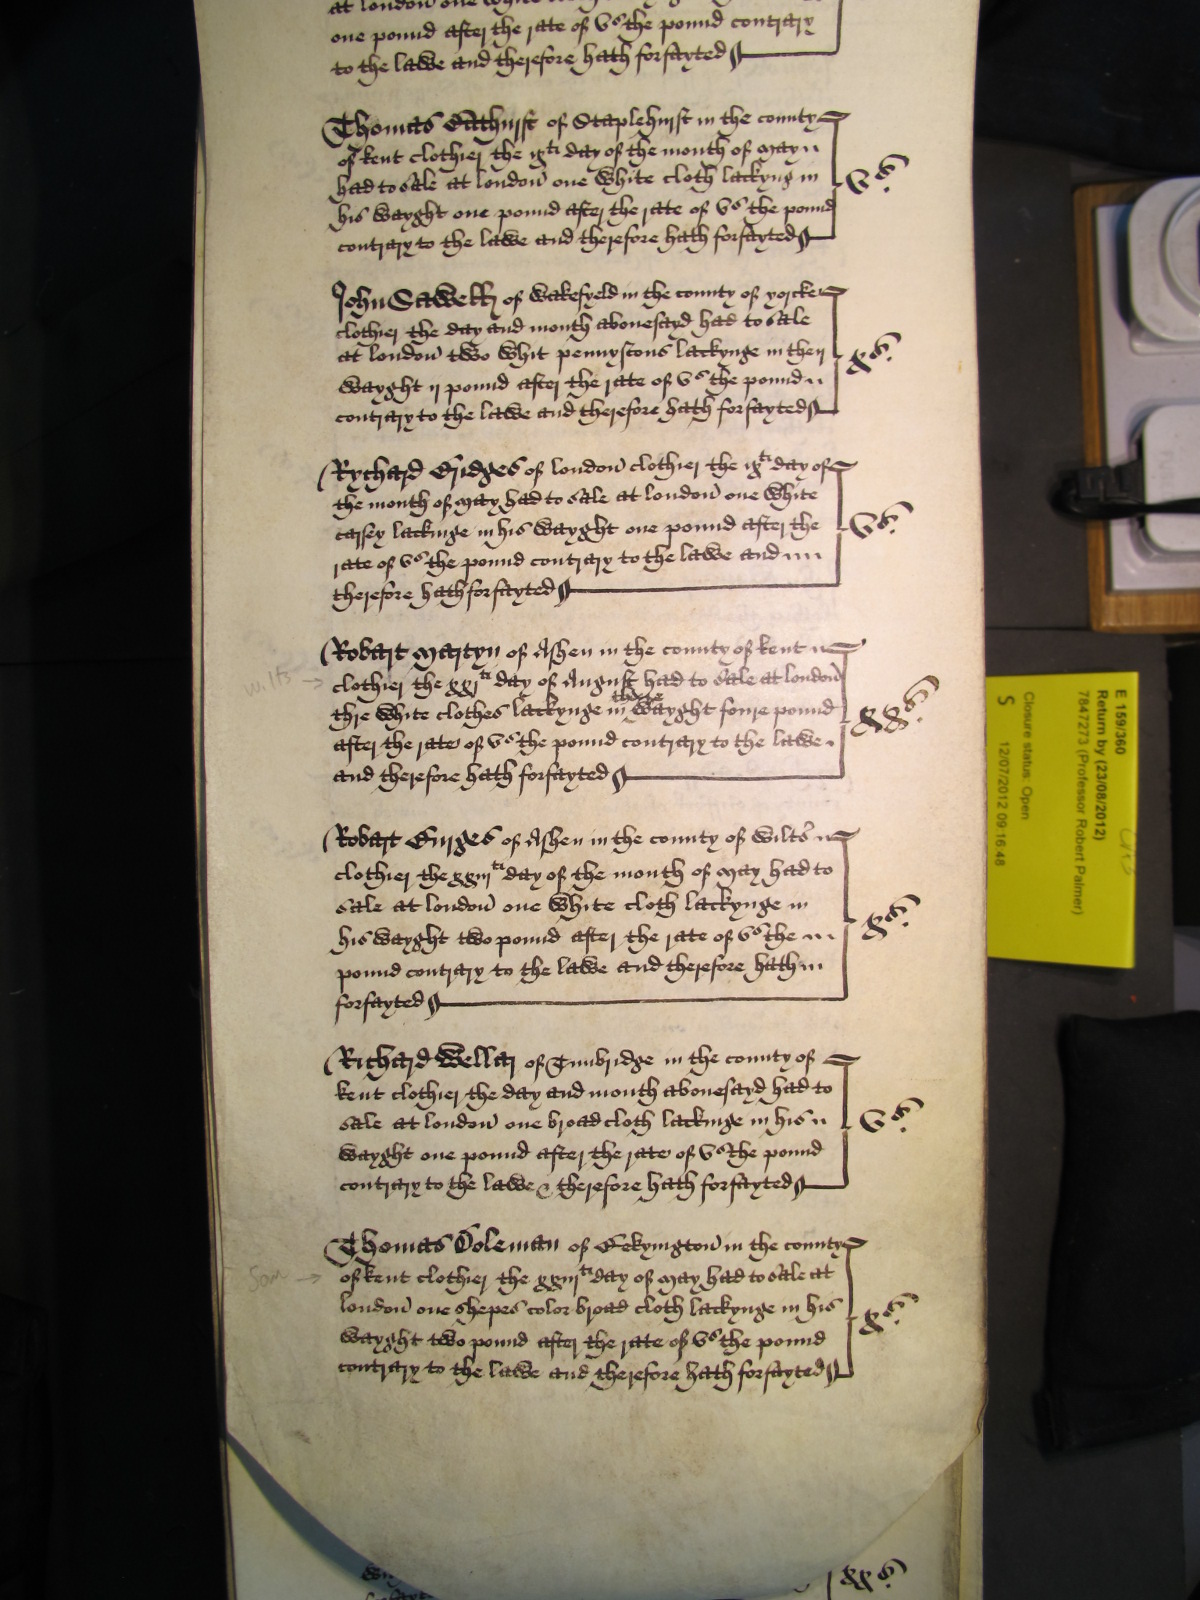 one pound after the rate of vs the pound contrary
to the lawe and therefore hath forfayted
Thomas Bathurst of Staplehurst in the county
of kent clothier the ixth day of the month of may
had to sale at london one white cloth lackyng in
his wayght one pound after the rate of vs the pound
contrary to the lawe and therefore hath forfayted
vs
John Sawell of wakefyeld in the county of yorke
clothier the day and month abouesayd had to sale
at london two whit pennystons lackynge in their
wayght ij pound after the rate of vs the pound
contrary to the lawe and therefore hath forfayted
xs
Rychard Bridges of london clothier the ixth day of
the month of may had to sale at london one white
carsey lackinge in his wayght one pound after the
rate of vs the pound contrary to the lawe and
therefore hath forfayted
vs
Robart Martyn of Ashen in the county of kent
wilts →
clothier the xxjth day of August had to sale at london
thre white clothes lackynge in wayght foure pound
after the rate of vs the pound contrary to the lawe
and therefore hath forfayted
xxs
Robart Burges of Ashen in the county of wilts
clothier the xxiijth day of the month of may had to
sale at london one white cloth lackynge in
his wayght two pound after the rate of vs the
pound contrary to the lawe and therefore hath
forfayted
xs
Richard Wellar of Tunbridge in the county of
kent clothier the day and month abouesayd had to
sale at london one broad cloth lackinge in his
wayght one pound after the rate of vs the pound
contrary to the lawe & therefore hath forfayted
vs
Thomas Coleman of Bekyngton in the county
Som →
of kent clothier the xxiijth day of may had to sale at
london one shepes color broad cloth lackynge in his
wayght two pound after the rate of vs the pound
contrary to the lawe and therefore hath forfayted
xs
E 159/360
Return by (23/08/2012)
7847273 (Professor Robert Palmer)
Closure status: Open
S 12/07/2012 09:16:48